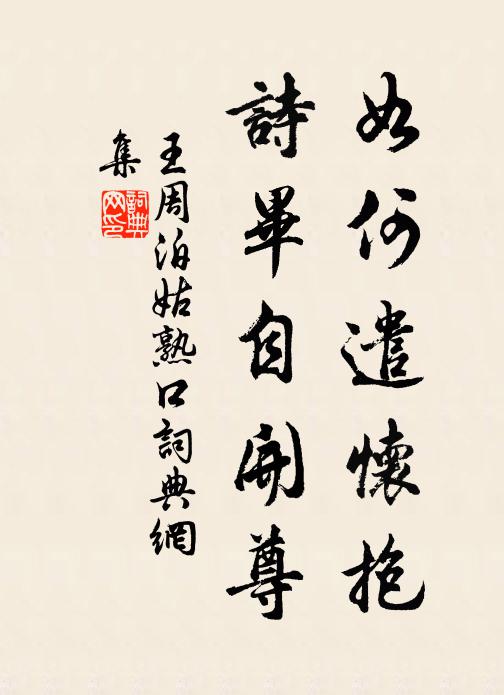 如何遣懷抱
詩畢自開尊
王周泊姑熟口詞典網
集
詞典網印